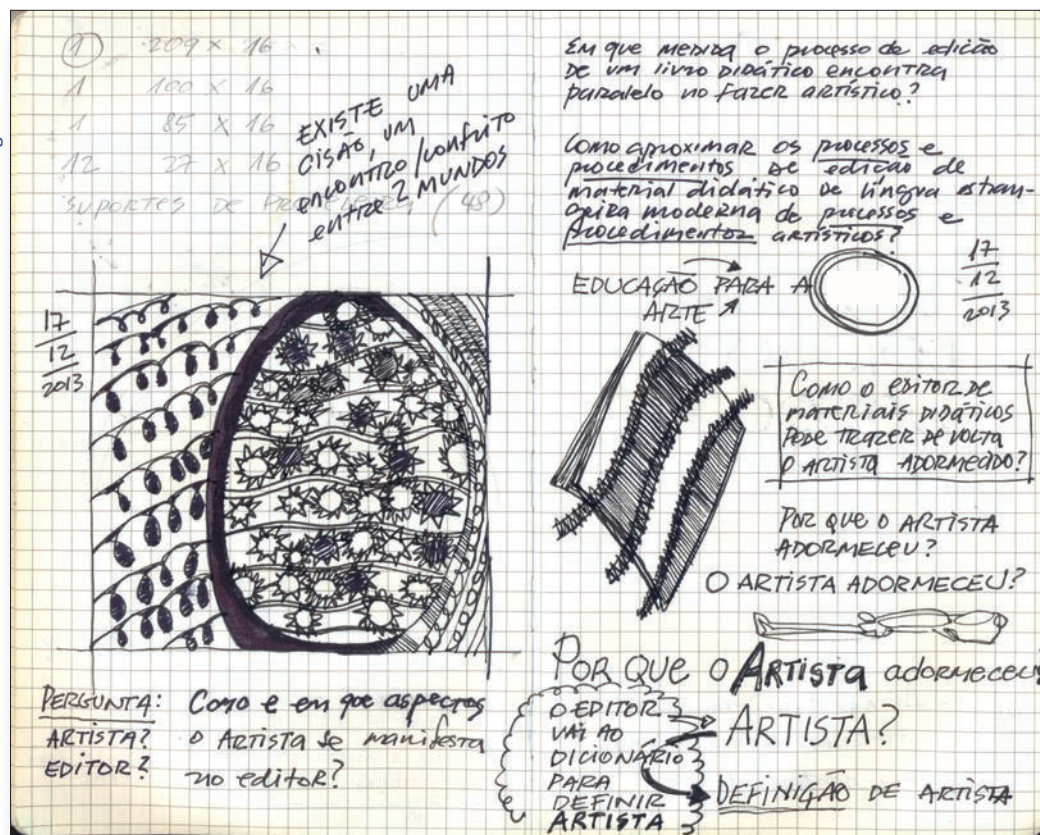 1 209 x 16
1 100 x 16
1 85 x 16
12 27 x 16
SUPORTES DE (48)
EXISTE UMA
CISÃO, UM
encontro/conflito
entre 2 MUNDOS
17
12
2013
PERGUNTA:
ARTISTA?
EDITOR?
Como e em que aspectos
o ARTISTA se manifesta
no editor?
Em que medida o processo de edição
DE um livro DIDÁTICO encontra
paralelo no fazer artístico?
Como aproximar os processos e
procedimentos DE edição de
material didático de língua estran-
geira moderna de processos e
procedimentos artísticos?
EDUCAÇÃO PARA A
ARTE
17
12
2013
Como o editor de
materiais didáticos
pode trazer de volta
o ARTISTA ADORMECIDO?
Por que o ARTISTA
ADORMECEU?
O ARTISTA ADORMECEU?
POR QUE O ARTISTA adormeceu?
O EDITOR
VAI AO
DICIONÁRIO
PARA
DEFINIR
ARTISTA
ARTISTA?
DEFINIÇÃO DE ARTISTA